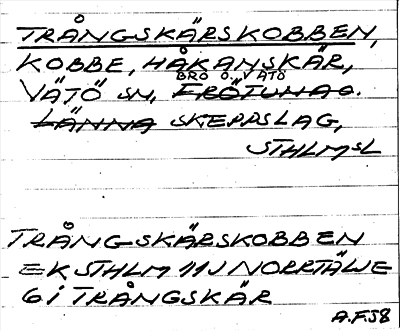 TRÅNGSKÄRSKOBBEN,
KOBBE, HÅKANSKÄR,
BRO O. VÄTÖ
VÄTÖ SN, FRÖTUNA O.
LÄNNA SKEPPSLAG,
STHLMSL
TRÅNGSKÄRSKOBBEN
EK STHLM 11J NORRTÄLJE
6 i TRÅNGSKÄR
A.F.58